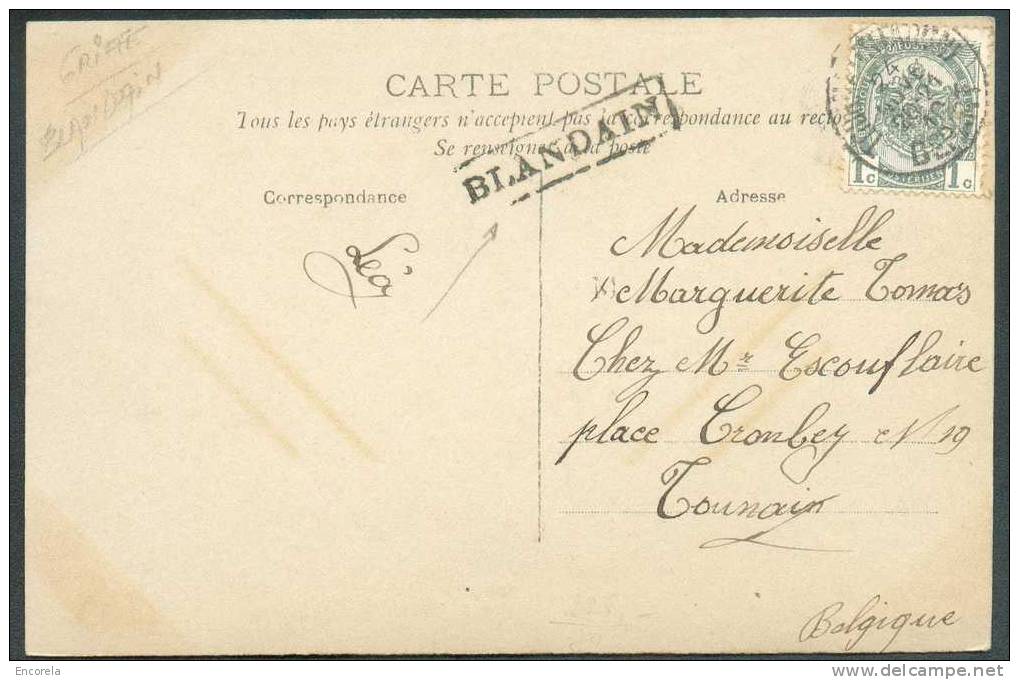 CARTE POSTALE
Tous les pays étrangers n'acceptent pas la correspondance au recto
Se renseigner à la poste
BLANDAIN
Correspondance
Adresse
1c 1c
Léa
Mademoiselle
Marguerite Tomas
Chez Mr Escouflaire
place Crombez N 19
Tournai
Belgique
GRIFFE
Encorela
www.delcampe.net